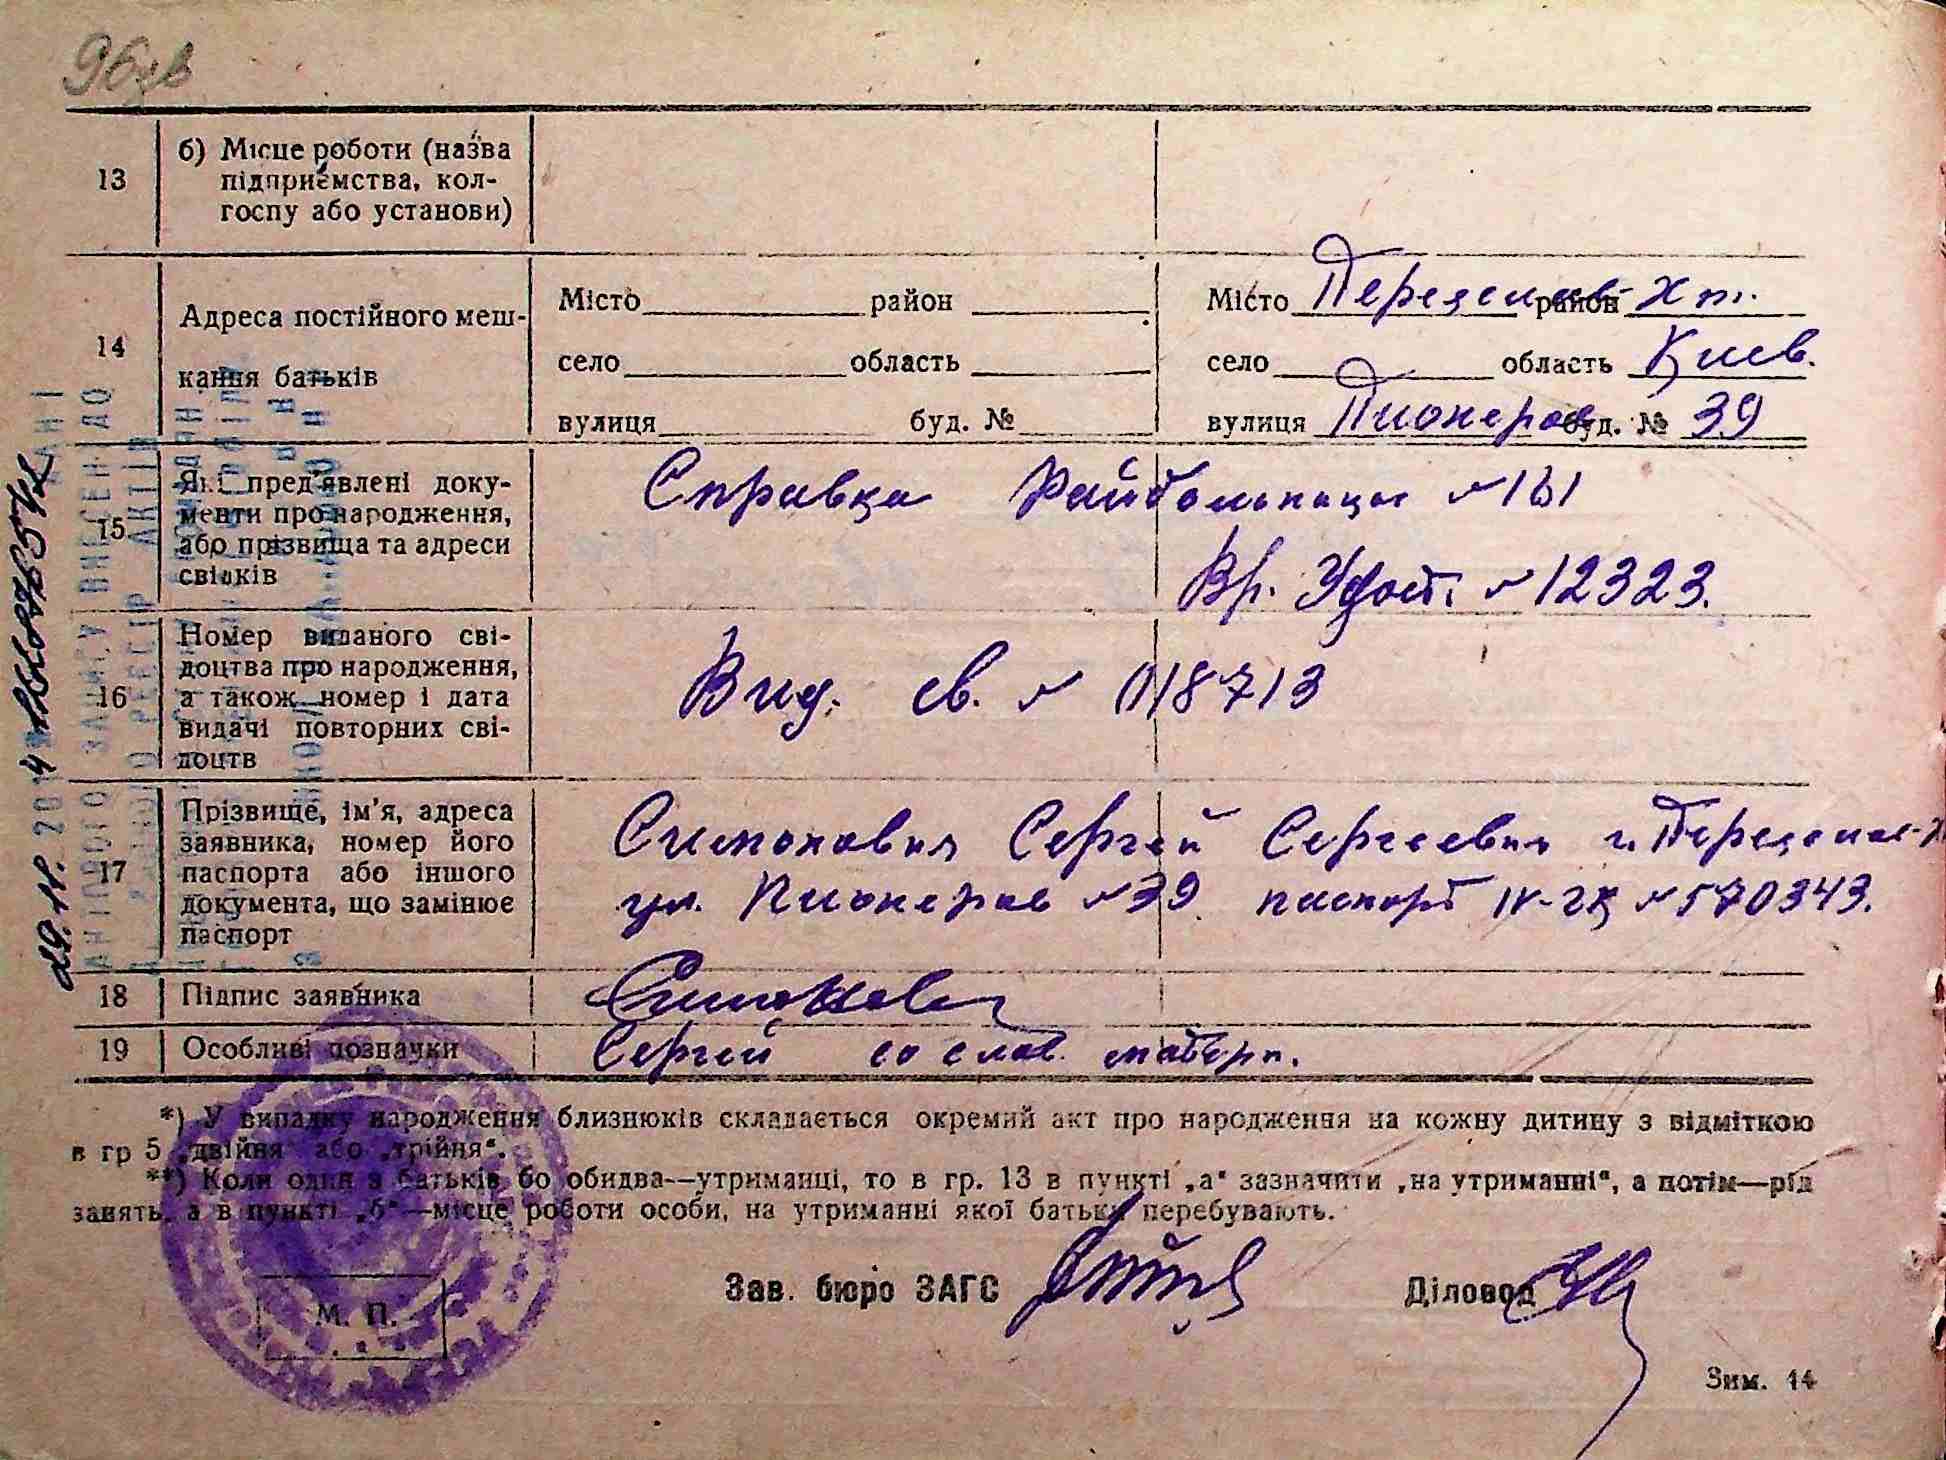 96зв
13 б) Місце роботи (назва
підприємства, кол-
госпу або установи)
14 Адреса постійного меш-
кання батьків
Місто район
село область
вулиця буд. №
Місто Переяслав-Хм. район
село область Киев.
вулиця Пионеров буд. № 39
15 Які пред'явлені доку-
менти про народження,
або прізвища та адреси
свідків
Справка Райбольницы № 161
Вр. Удост. № 12323.
16 Номер виданого сві-
доцтва про народження,
а також номер і дата
видачі повторних сві-
доцтв
Выд. св. № 018713
17 Прізвище, ім'я, адреса
заявника, номер його
паспорта або іншого
документа, що замінює
паспорт
Симонович Сергей Сергеевич г. Переяслав-Х
ул. Пионеров № 39 паспорт № 570343.
18 Підпис заявника
19 Особливі позначки
Сергей со слов. матери.
*) У випадку народження близнюків складається окремий акт про народження на кожну дитину з відміткою
в гр 5 „двійня" або „трійня".
**) Коли один з батьків бо обидва—утриманці, то в гр. 13 в пункті „а" зазначити „на утриманні", а потім—рід
занять, а в пункті „б"—місце роботи особи, на утриманні якої батьки перебувають.
Зав. бюро ЗАГС
Діловод
М. П.
Зим. 14